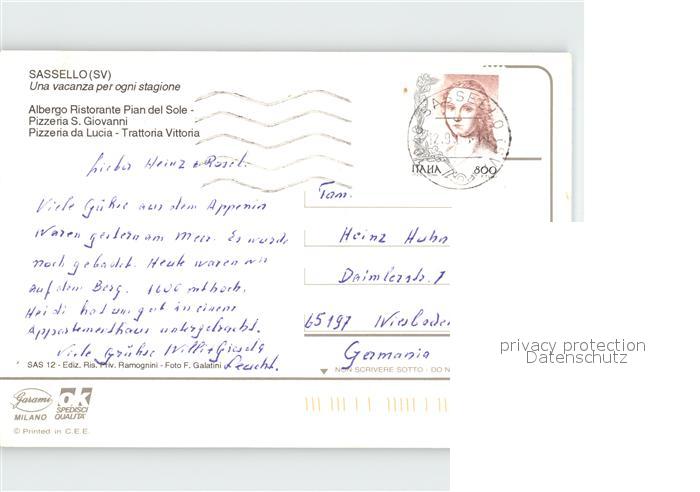 SASSELLO (SV)
Una vacanza per ogni stagione
Albergo Ristorante Pian del Sole -
Pizzeria S. Giovanni
Pizzeria da Lucia - Trattoria Vittoria
SASSELLO
ITALIA 800
Lieber Heinz u. Rosel.
Viele Grüße aus dem Appenin
Waren gestern am Meer. Es wurde
noch gebadet. Heute waren wir
auf dem Berg. 1600 m hoch.
Heidi hat uns gut in einem
Appartementhaus untergebracht.
Viele Grüße Willi
Fam.
Heinz Huhn
Daimlerstr. 7
65197 Wiesbaden
Germania
SAS 12 - Ediz. Ris. Priv. Ramognini - Foto F. Galatini
NON SCRIVERE SOTTO - DO N
Garami
MILANO
ok
SPEDISCI
QUALITA'
© Printed in C.E.E.
privacy protection
Datenschutz